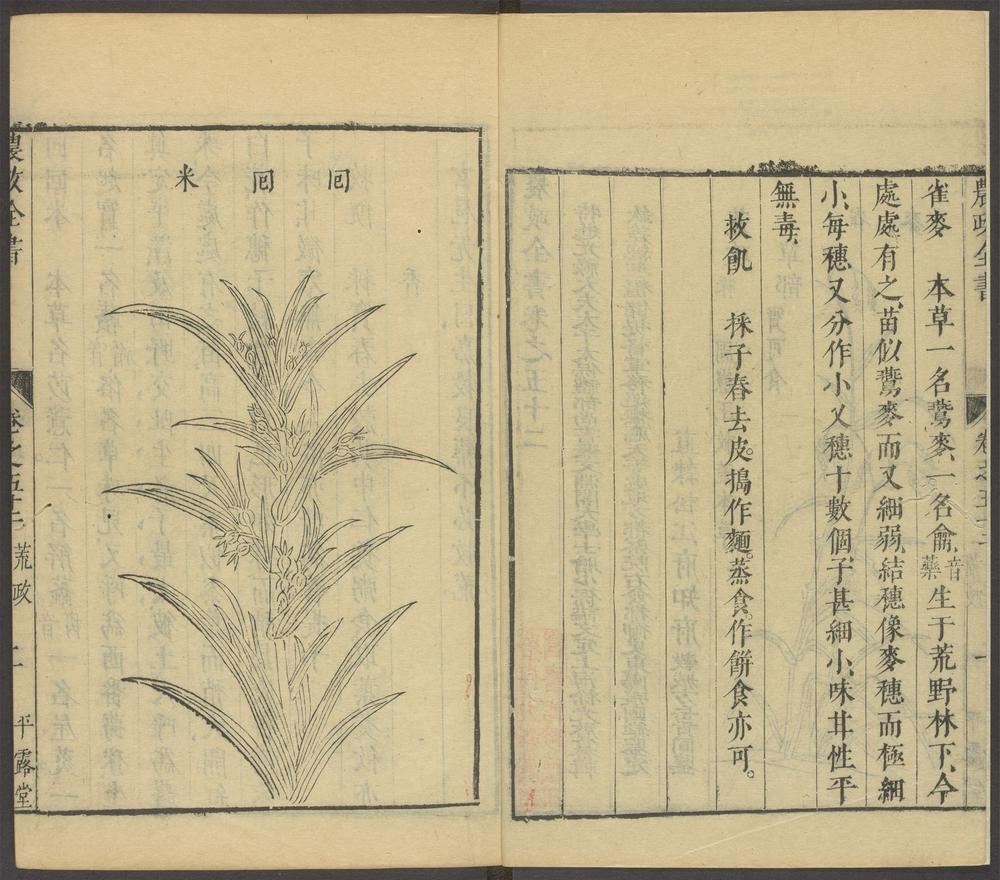 農政全書 卷之五十二 一
雀麥 本草一名鷰麥、一名䕱、音藥生于荒野林下、今
處處有之、苗似鷰麥而又細弱、結穗像麥穗而極細
小、每穗又分作小叉穗十數個子甚細小、味甘性平
無毒、
救飢 採子舂去皮。搗作麵。蒸食。作餅食亦可。
回回米
農政全書 卷之五十二 荒政 二 平露堂